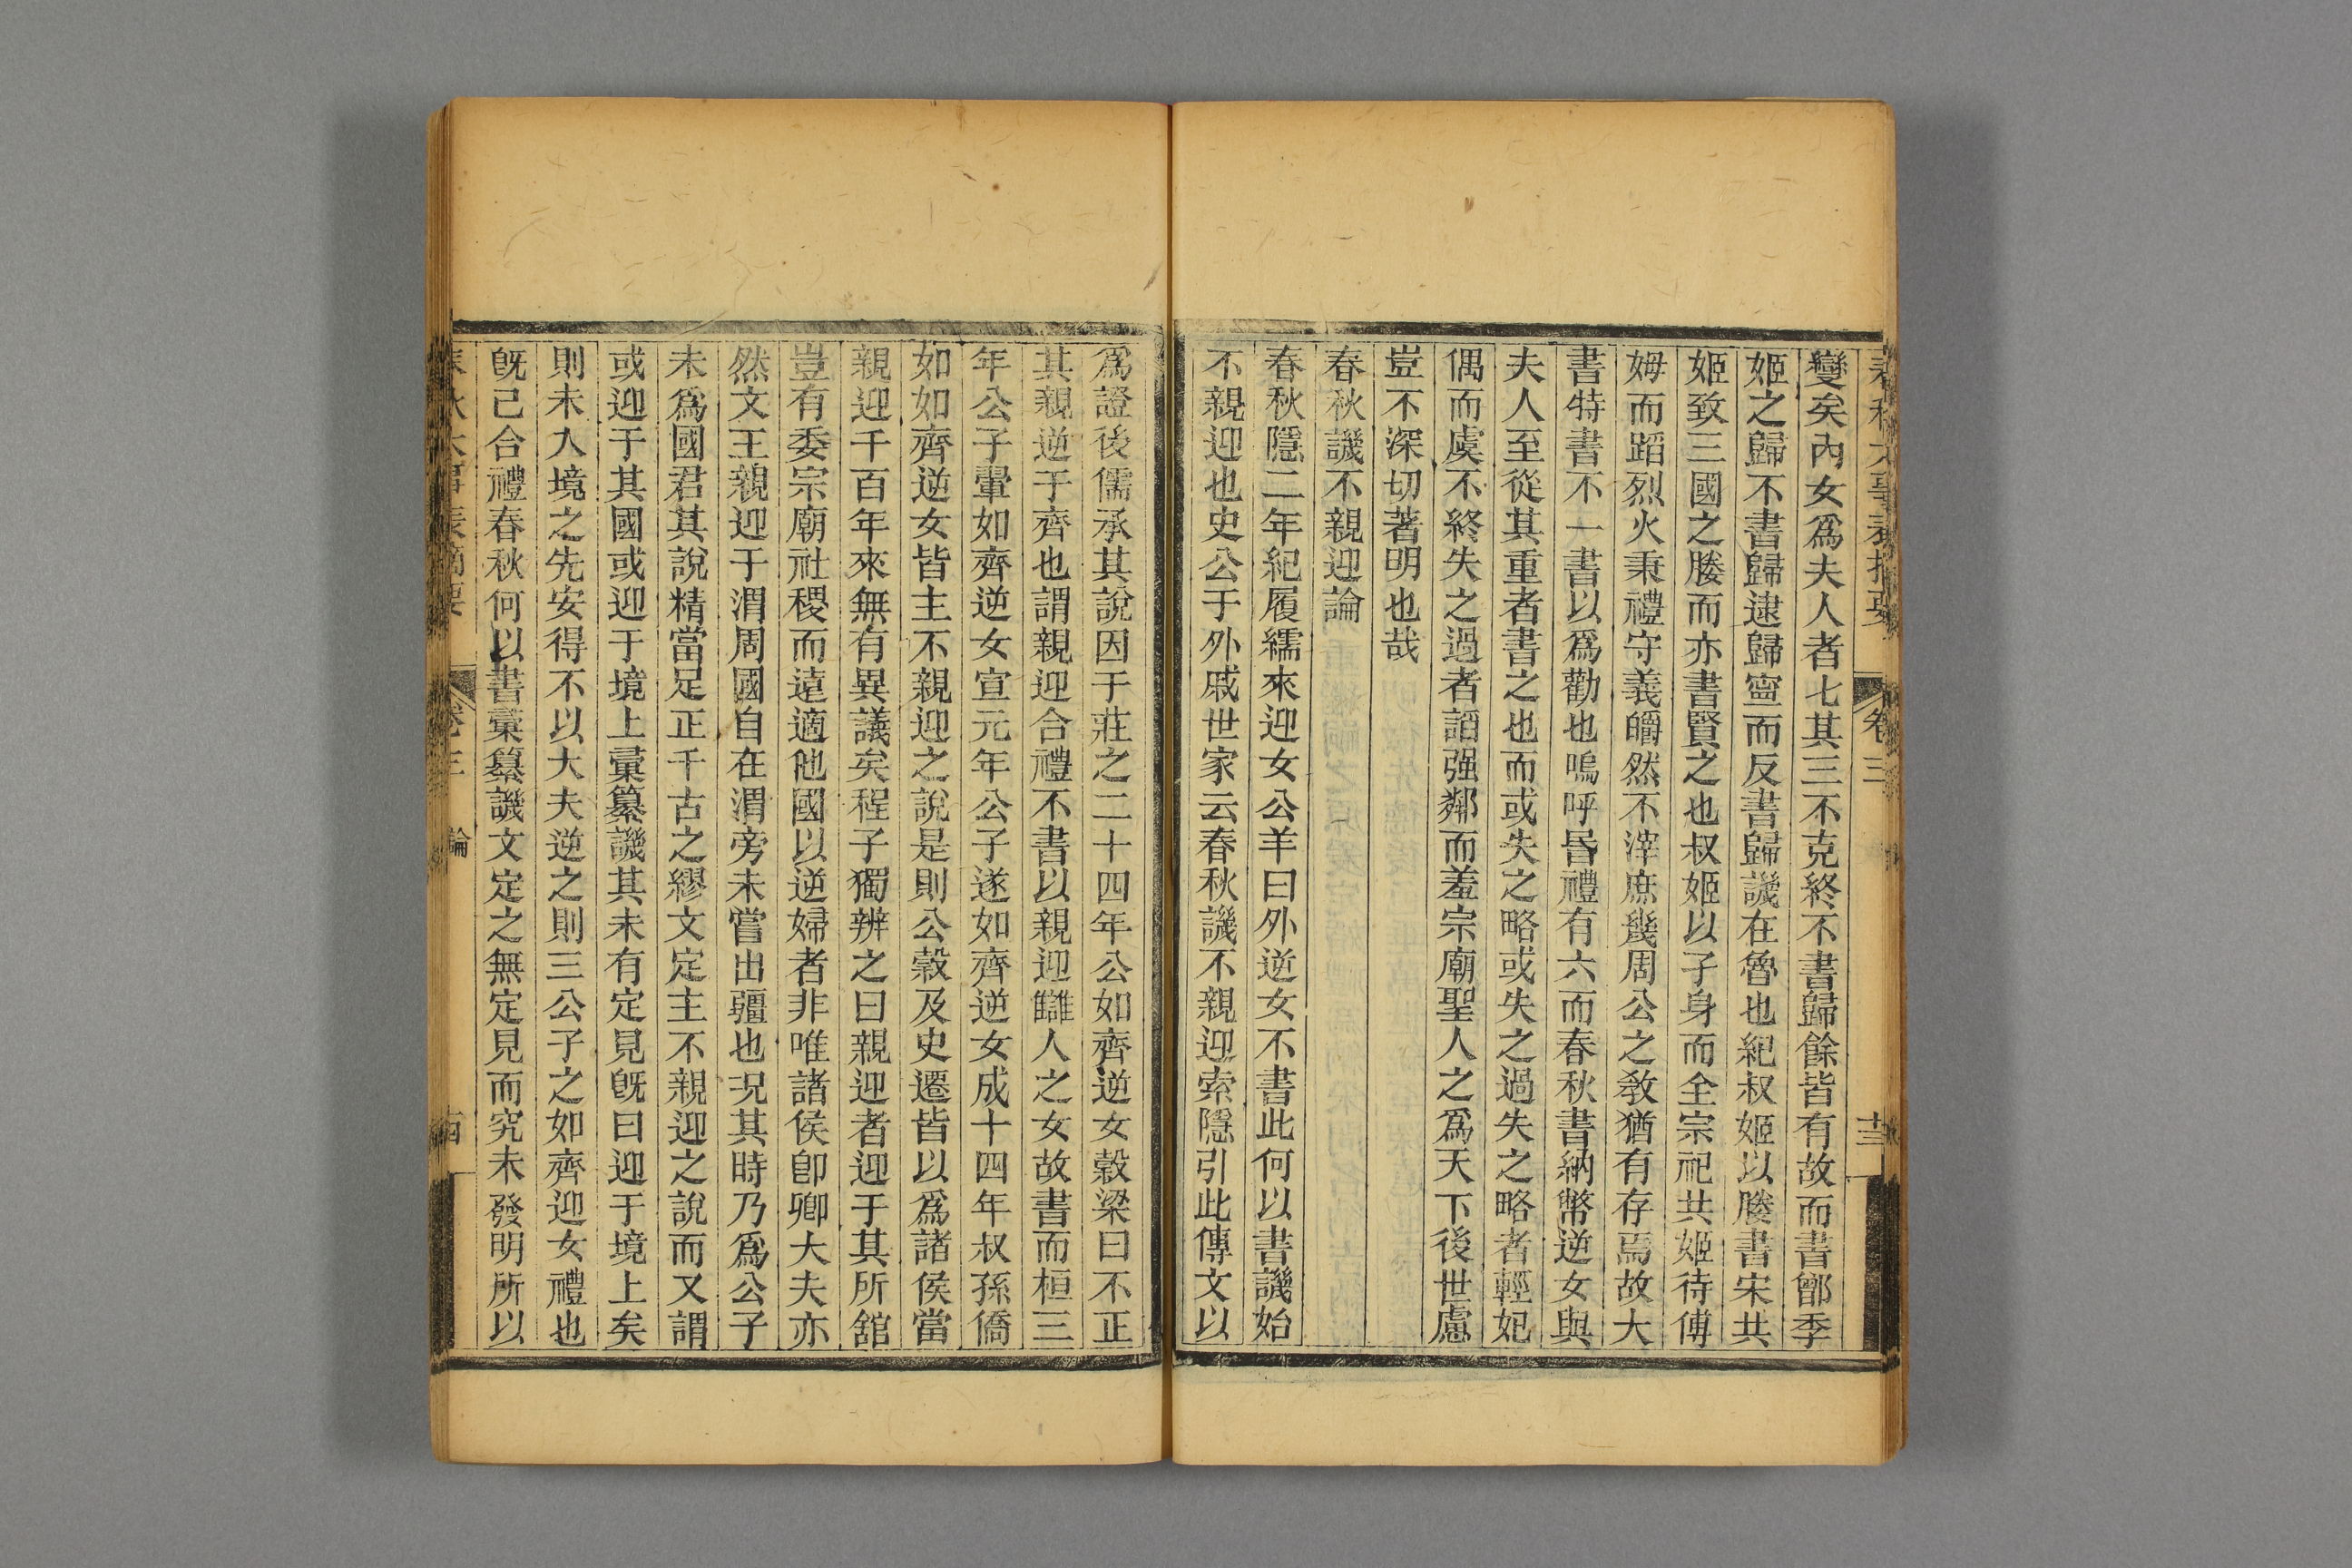 春秋大事表摘要 卷三 十三
變矣內女爲夫人者七其三不克終不書歸餘皆有故而書鄫季
姬之歸不書歸逮歸寧而反書歸譏在魯也紀叔姬以媵書宋共
姬致三國之媵而亦書賢之也叔姬以子身而全宗祀共姬待傅
姆而蹈烈火秉禮守義皭然不滓庶幾周公之敎猶有存焉故大
書特書不一書以爲勸也嗚呼昏禮有六而春秋書納幣逆女與
夫人至從其重者書之也而或失之略或失之過失之略者輕妃
偶而虞不終失之過者謟强鄰而羞宗廟聖人之爲天下後世慮
豈不深切著明也哉
春秋譏不親迎論
春秋隱二年紀履繻來迎女公羊曰外逆女不書此何以書譏始
不親迎也史公于外戚世家云春秋譏不親迎索隱引此傳文以
爲證後儒承其說因于莊之二十四年公如齊逆女穀梁曰不正
其親逆于齊也謂親迎合禮不書以親迎讎人之女故書而桓三
年公子翬如齊逆女宣元年公子遂如齊逆女成十四年叔孫僑
如如齊逆女皆主不親迎之說是則公穀及史遷皆以爲諸侯當
親迎千百年來無有異議矣程子獨辨之曰親迎者迎于其所舘
豈有委宗廟社稷而遠適他國以逆婦者非唯諸侯卽卿大夫亦
然文王親迎于渭周國自在渭旁未嘗出疆也況其時乃爲公子
未爲國君其說精當足正千古之繆文定主不親迎之說而又謂
或迎于其國或迎于境上彙纂譏其未有定見旣曰迎于境上矣
則未入境之先安得不以大夫逆之則三公子之如齊迎女禮也
旣己合禮春秋何以書彙纂譏文定之無定見而究未發明所以
春秋大事表摘要 卷三 論 十四